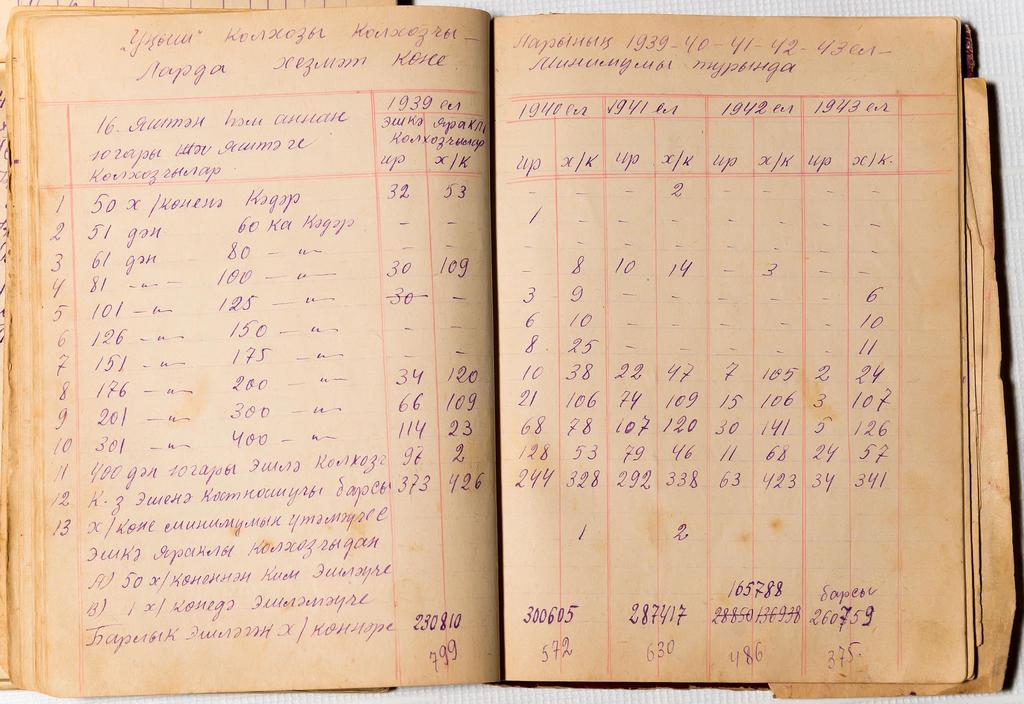 „Уңыш" колхозы колхозчы-
ларда хезмәт көне
16. Яштән һәм аннан
югары яштәге
колхозчылар
1939 ел
эшкә яраклы
колхозчылар
ир х/к
1 50 х/көненә кәдәр 32 53
2 51 дән 60 ка кәдәр - -
3 61 дән 80 -"- - -
4 81 -"- 100 -"- 30 109
5 101 -"- 125 -"- 30 -
6 126 -"- 150 -"- - -
7 151 -"- 175 -"- - -
8 176 -"- 200 -"- 34 120
9 201 -"- 300 -"- 66 109
10 301 -"- 400 -"- 114 23
11 400 дән югары эшлә колхозч 97 2
12 К.з эшенә катнашучы барсы 373 426
13 х/көне минимумын үтәмәүче
эшкә яраклы колхозчыдан
А) 50 х/көненнән ким эшләүче
В) 1 х/көнедә эшләмәүче
Барлык эшләгән х/көннәре 230810
799
ларының 1939-40-41-42-43 ел-
минимумы турында
1940 ел 1941 ел 1942 ел 1943 ел
ир х/к ир х/к ир х/к ир х/к.
- - - 2 - - - -
1 - - - - - - -
- - - - - - - -
- 8 10 14 - 3 - -
3 9 - - - - - 6
6 10 - - - - - 10
8 25 - - - - - 11
10 38 22 47 7 105 2 24
21 106 74 109 15 106 3 107
68 78 107 120 30 141 5 126
128 53 79 46 11 68 24 57
244 328 292 338 63 423 34 341
1 2
165788 барсы
300605 287417 28850 136938 260759
572 630 486 375.